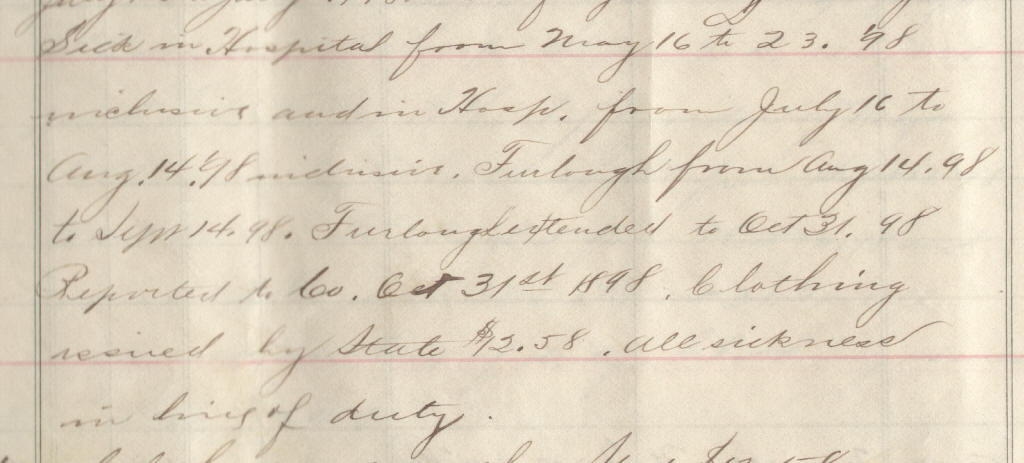 Sick in Hospital from May 16 to 23. '98
inclusive and in Hosp. from July 16 to
Aug. 14. '98 inclusive. Furlough from Aug 14. 98
to Sept 14. 98. Furlough extended to Oct 31. 98
Reported to Co. Oct 31st 1898. Clothing
issued by State $2.58. all sickness
in line of duty.